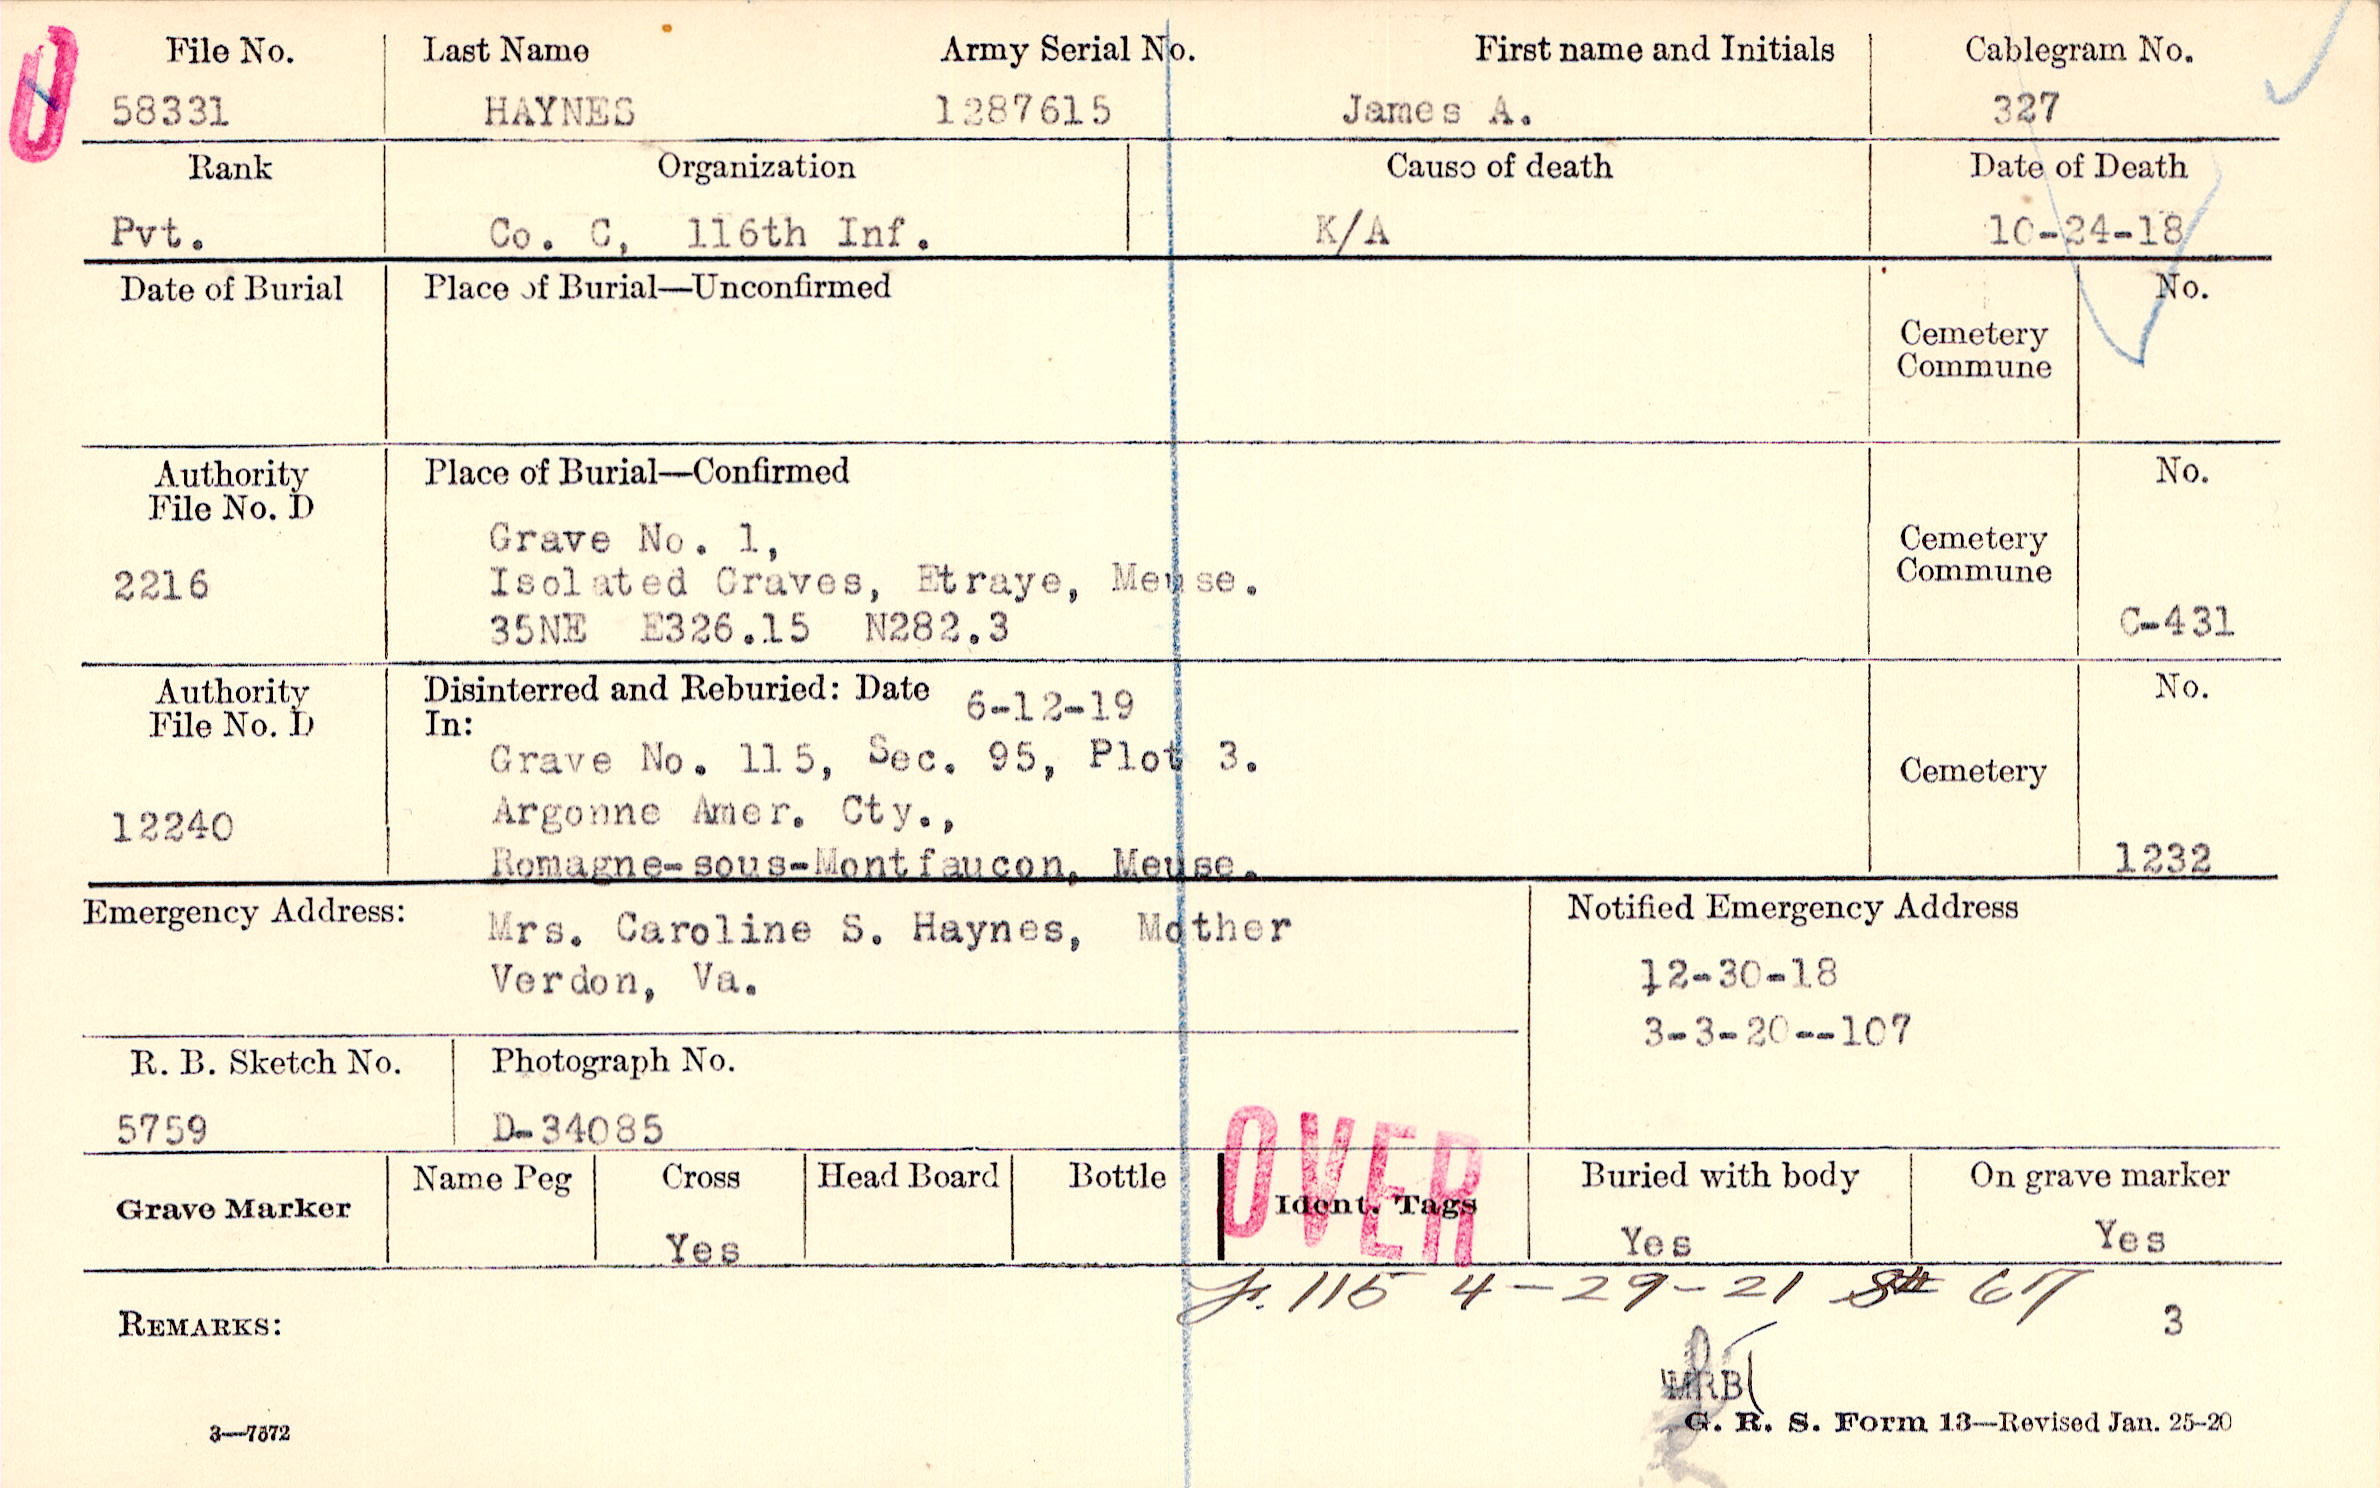 File No. Last Name Army Serial No. First name and Initials Cablegram No.
58331 HAYNES 1287615 James A. 327
Rank Organization Cause of death Date of Death
Pvt. Co. C, 116th Inf. K/A 10-24-18
Date of Burial Place of Burial—Unconfirmed No.
Cemetery
Commune
Authority Place of Burial—Confirmed No.
File No. D
Grave No. 1,
Cemetery
2216 Isolated Graves, Etraye, Meuse.
Commune
35NE E326.15 N282.3 C-431
Authority Disinterred and Reburied: Date 6-12-19 No.
File No. D In:
Grave No. 115, Sec. 95, Plot 3.
Cemetery
12240 Argonne Amer. Cty.,
Romagne-sous-Montfaucon, Meuse. 1232
Emergency Address: Mrs. Caroline S. Haynes, Mother Notified Emergency Address
Verdon, Va. 12-30-18
3-3-20--107
R. B. Sketch No. Photograph No.
5759 D-34085
OVER
Grave Marker Name Peg Cross Head Board Bottle Ident. Tags Buried with body On grave marker
Yes Yes Yes
115 4-29-21 67
REMARKS: 3
MRB
3—7572 G. R. S. Form 13—Revised Jan. 25-20